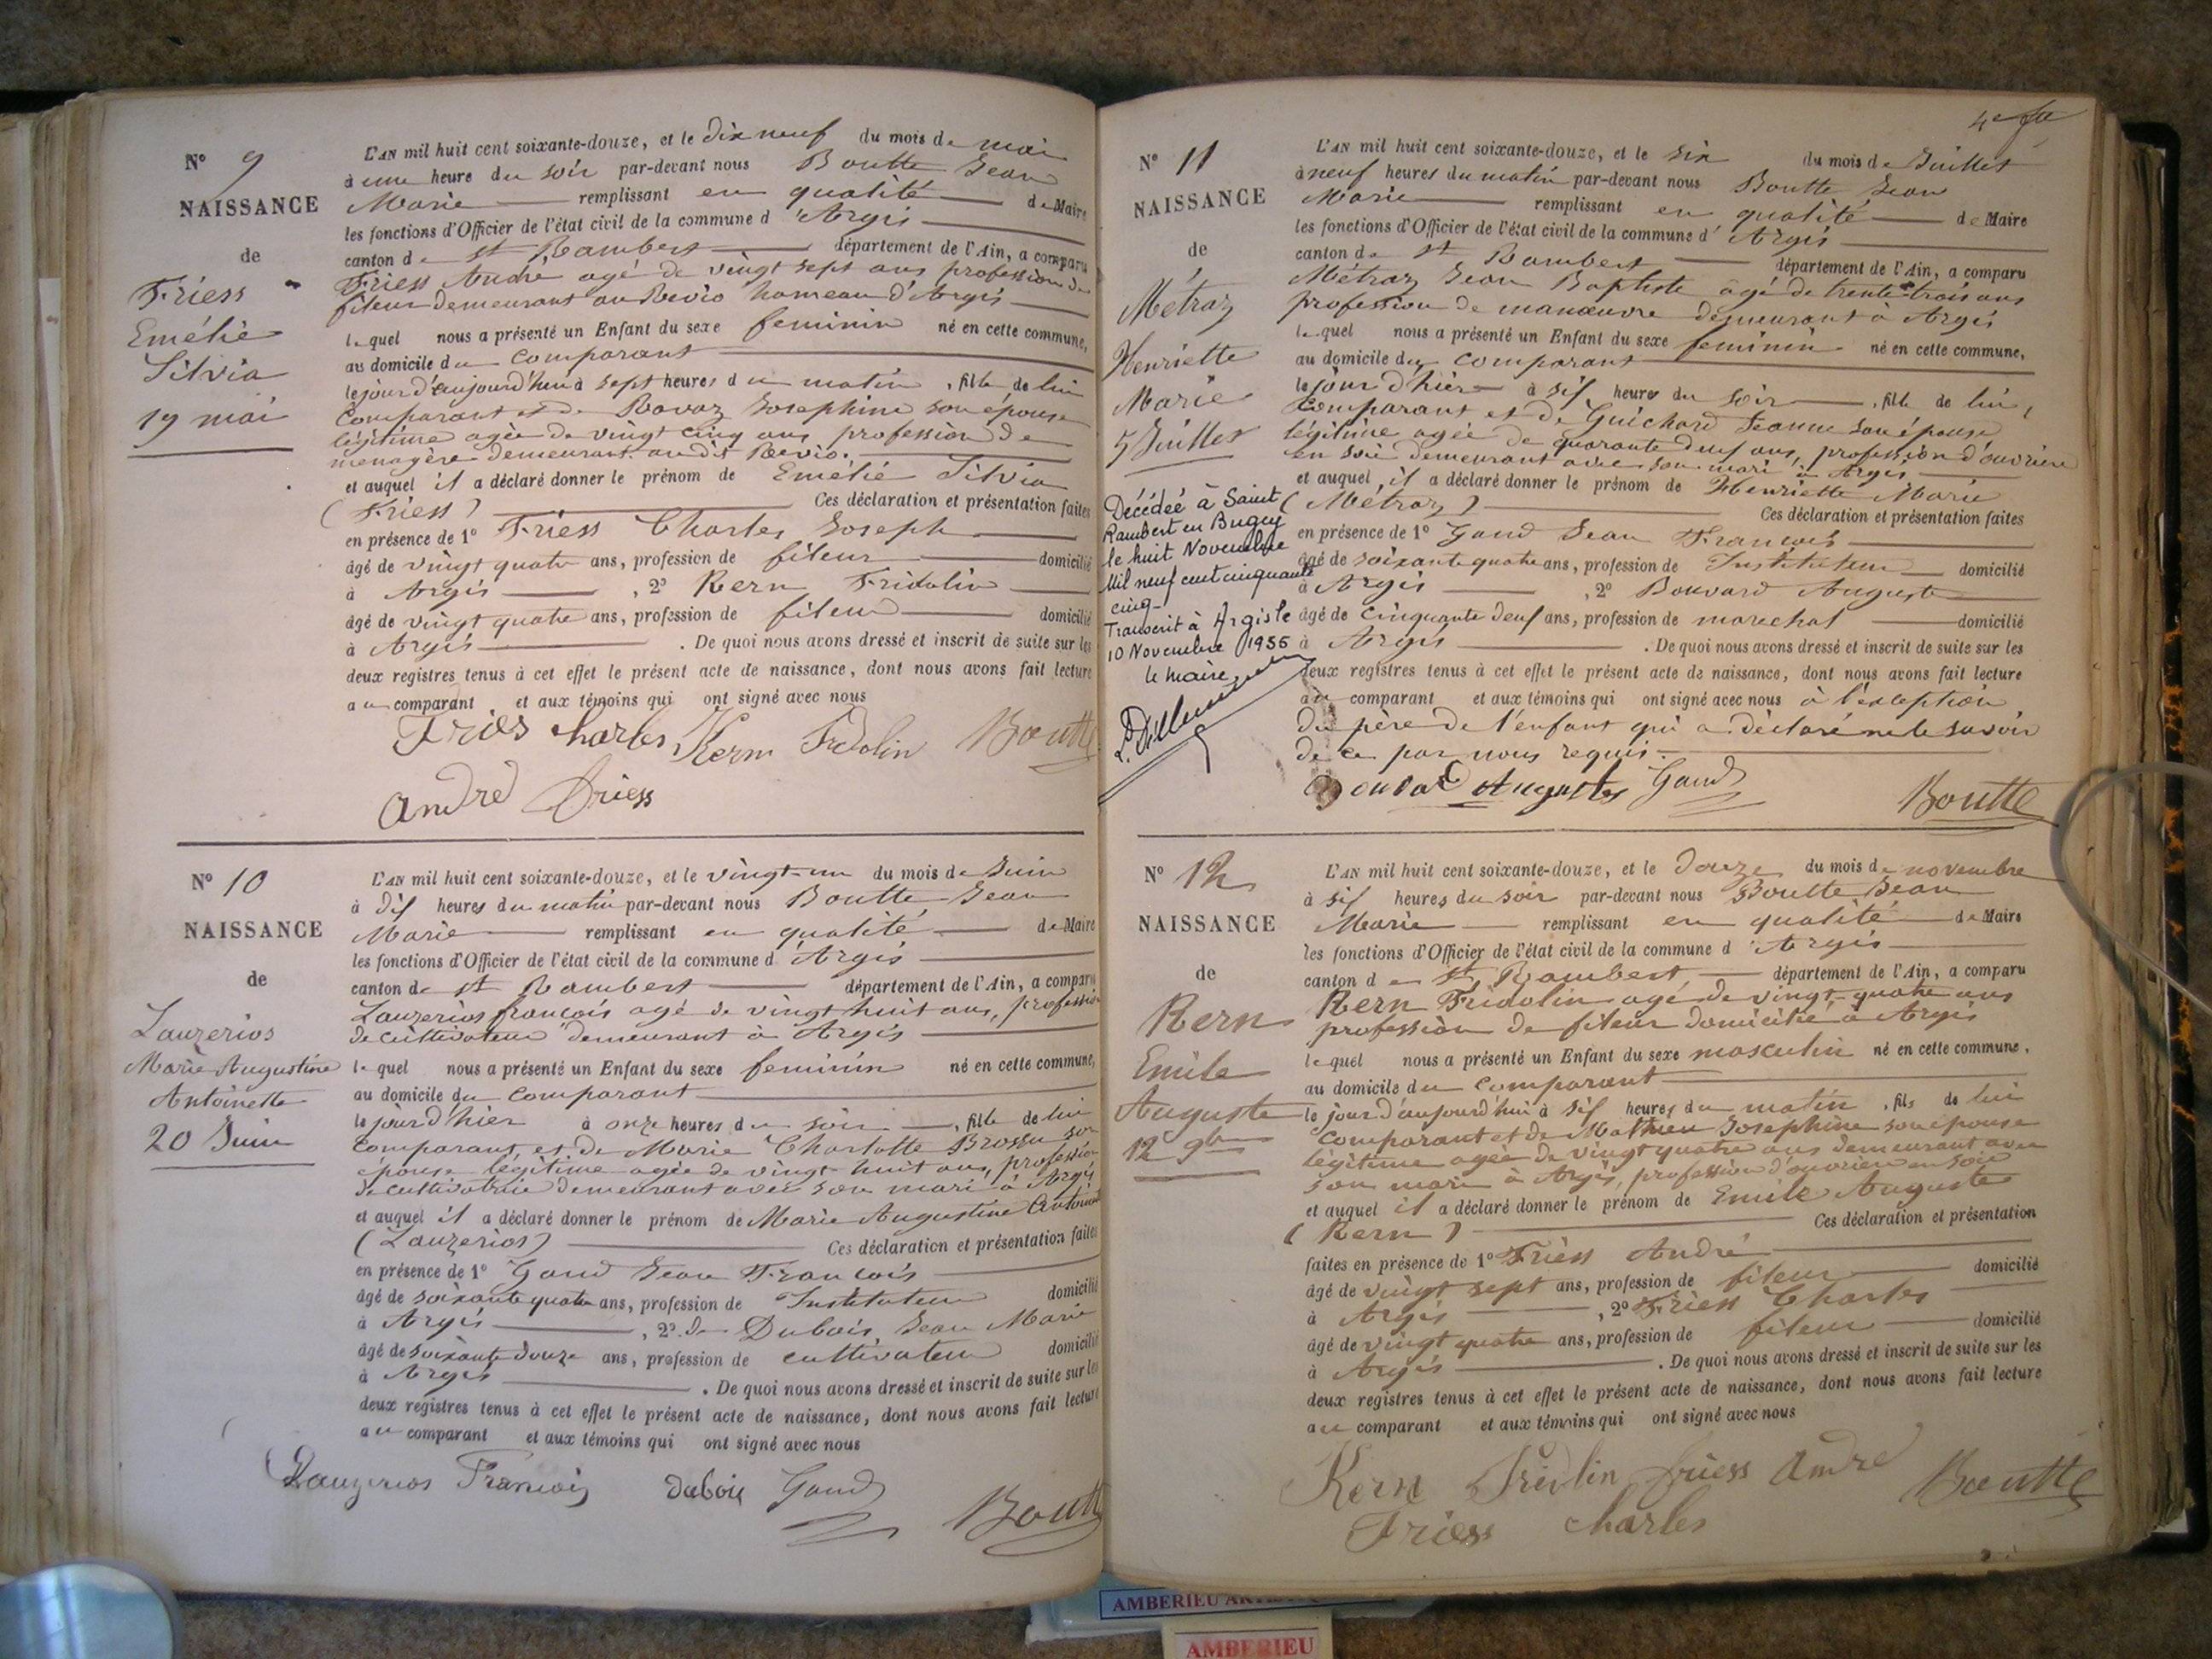 N° 9
NAISSANCE
de
Friess
Emélie
Silvia
19 mai
L'AN mil huit cent soixante-douze, et le dix neuf du mois de mai
à une heure du soir par-devant nous Boutte Jean
Marie remplissant en qualité de Maire
les fonctions d'Officier de l'état civil de la commune d'Argis
canton de st Rambert département de l'Ain, a comparu
Friess André agé de vingt sept ans profession de
fileur demeurant au Revio hameau d'Argis
lequel nous a présenté un Enfant du sexe feminin né en cette commune,
au domicile du comparant
le jour d'aujourd'hui à sept heures du matin, fille de lui
comparant et de Ravaz Josephine son épouse
légitime agée de vingt cinq ans profession de
menagère demeurant au dit Revio.
et auquel il a déclaré donner le prénom de Emélie Silvia
(Friess) Ces déclaration et présentation faites
en présence de 1° Friess Charles Joseph
âgé de vingt quatre ans, profession de fileur domicilié
à Argis, 2° Kern Fridolin
âgé de vingt quatre ans, profession de fileur domicilié
à Argis. De quoi nous avons dressé et inscrit de suite sur les
deux registres tenus à cet effet le présent acte de naissance, dont nous avons fait lecture
au comparant et aux témoins qui ont signé avec nous
Fries Charles Kern Fridolin Boutte
André Friess
N° 10
NAISSANCE
de
Lauzerios
Marie Augustine
Antoinette
20 Juin
L'AN mil huit cent soixante-douze, et le vingt-un du mois de Juin
à dix heures du matin par-devant nous Boutte Jean
Marie remplissant en qualité de Maire
les fonctions d'Officier de l'état civil de la commune d'Argis
canton de st Rambert département de l'Ain, a comparu
Lauzerios françois agé de vingt huit ans, profession
de cultivateur demeurant à Argis
lequel nous a présenté un Enfant du sexe feminin né en cette commune,
au domicile du comparant
le jour d'hier à onze heures du soir, fille de lui
comparant et de Marie Charlotte Brossu son
épouse légitime agée de vingt-huit ans, profession
de cultivatrice demeurant avec son mari à Argis
et auquel il a déclaré donner le prénom de Marie Augustine Antoinette
(Lauzerios) Ces déclaration et présentation faites
en présence de 1° Gand Jean François
âgé de soixante quatre ans, profession de Instituteur domicilié
à Argis, 2° de Dubois Jean Marie
âgé de soixante douze ans, profession de cultivateur domicilié
à Argis. De quoi nous avons dressé et inscrit de suite sur les
deux registres tenus à cet effet le présent acte de naissance, dont nous avons fait lecture
au comparant et aux témoins qui ont signé avec nous
Lauzerios François dubois Gand
Boutte
N° 11
NAISSANCE
de
Métraz
Henriette
Marie
5 Juillet
Décédée à Saint
Rambert en Bugey
le huit Novembre
Mil neuf cent cinquante
cinq -
Transcrit à Argis le
10 Novembre 1955
le maire,
L'AN mil huit cent soixante-douze, et le six du mois de Juillet
à neuf heures du matin par-devant nous Boutte Jean
Marie remplissant en qualité de Maire
les fonctions d'Officier de l'état civil de la commune d'Argis
canton de st Rambert département de l'Ain, a comparu
Métraz Jean Baptiste agé de trente trois ans
profession de manœuvre demeurant à Argis
lequel nous a présenté un Enfant du sexe feminin né en cette commune,
au domicile du comparant
le jour d'hier à six heures du soir, fille de lui,
comparant et de Guichard Jeanne son épouse
légitime agée de quarante deux ans, profession d'ouvrière
en soie demeurant avec son mari à Argis
et auquel, il a déclaré donner le prénom de Henriette Marie
(Métraz) Ces déclaration et présentation faites
en présence de 1° Gand Jean François
âgé de soixante quatre ans, profession de Instituteur domicilié
à Argis, 2° Bouvard Auguste
âgé de cinquante deux ans, profession de marechal domicilié
à Argis. De quoi nous avons dressé et inscrit de suite sur les
deux registres tenus à cet effet le présent acte de naissance, dont nous avons fait lecture
au comparant et aux témoins qui ont signé avec nous à l'exception
du père de l'enfant qui a déclaré ne le savoir
de ce par nous requis.
Auguste Gand
Boutte
N° 12
NAISSANCE
de
Kern
Emile
Auguste
12 9bre
L'AN mil huit cent soixante-douze, et le douze du mois de novembre
à six heures du soir par-devant nous Boutte Jean
Marie remplissant en qualité de Maire
les fonctions d'Officier de l'état civil de la commune d'Argis
canton de st Rambert, département de l'Ain, a comparu
Kern Fridolin agé de vingt-quatre ans
profession de fileur domicilié à Argis
lequel nous a présenté un Enfant du sexe masculin né en cette commune,
au domicile du comparant
le jour d'aujourd'hui à six heures du matin, fils de lui
comparant et de Mathieu Josephine son épouse
légitime agée de vingt quatre ans demeurant avec
son mari à Argis, profession d'ouvrière en soie
et auquel il a déclaré donner le prénom de Emile Auguste
(Kern) Ces déclaration et présentation
faites en présence de 1° Friess André
âgé de vingt sept ans, profession de fileur domicilié
à Argis, 2° Friess Charles
âgé de vingt quatre ans, profession de fileur domicilié
à Argis. De quoi nous avons dressé et inscrit de suite sur les
deux registres tenus à cet effet le présent acte de naissance, dont nous avons fait lecture
au comparant et aux témoins qui ont signé avec nous
Kern Fridolin Friess André
Boutte
Friess Charles
AMBERIEU
AMBERIEU